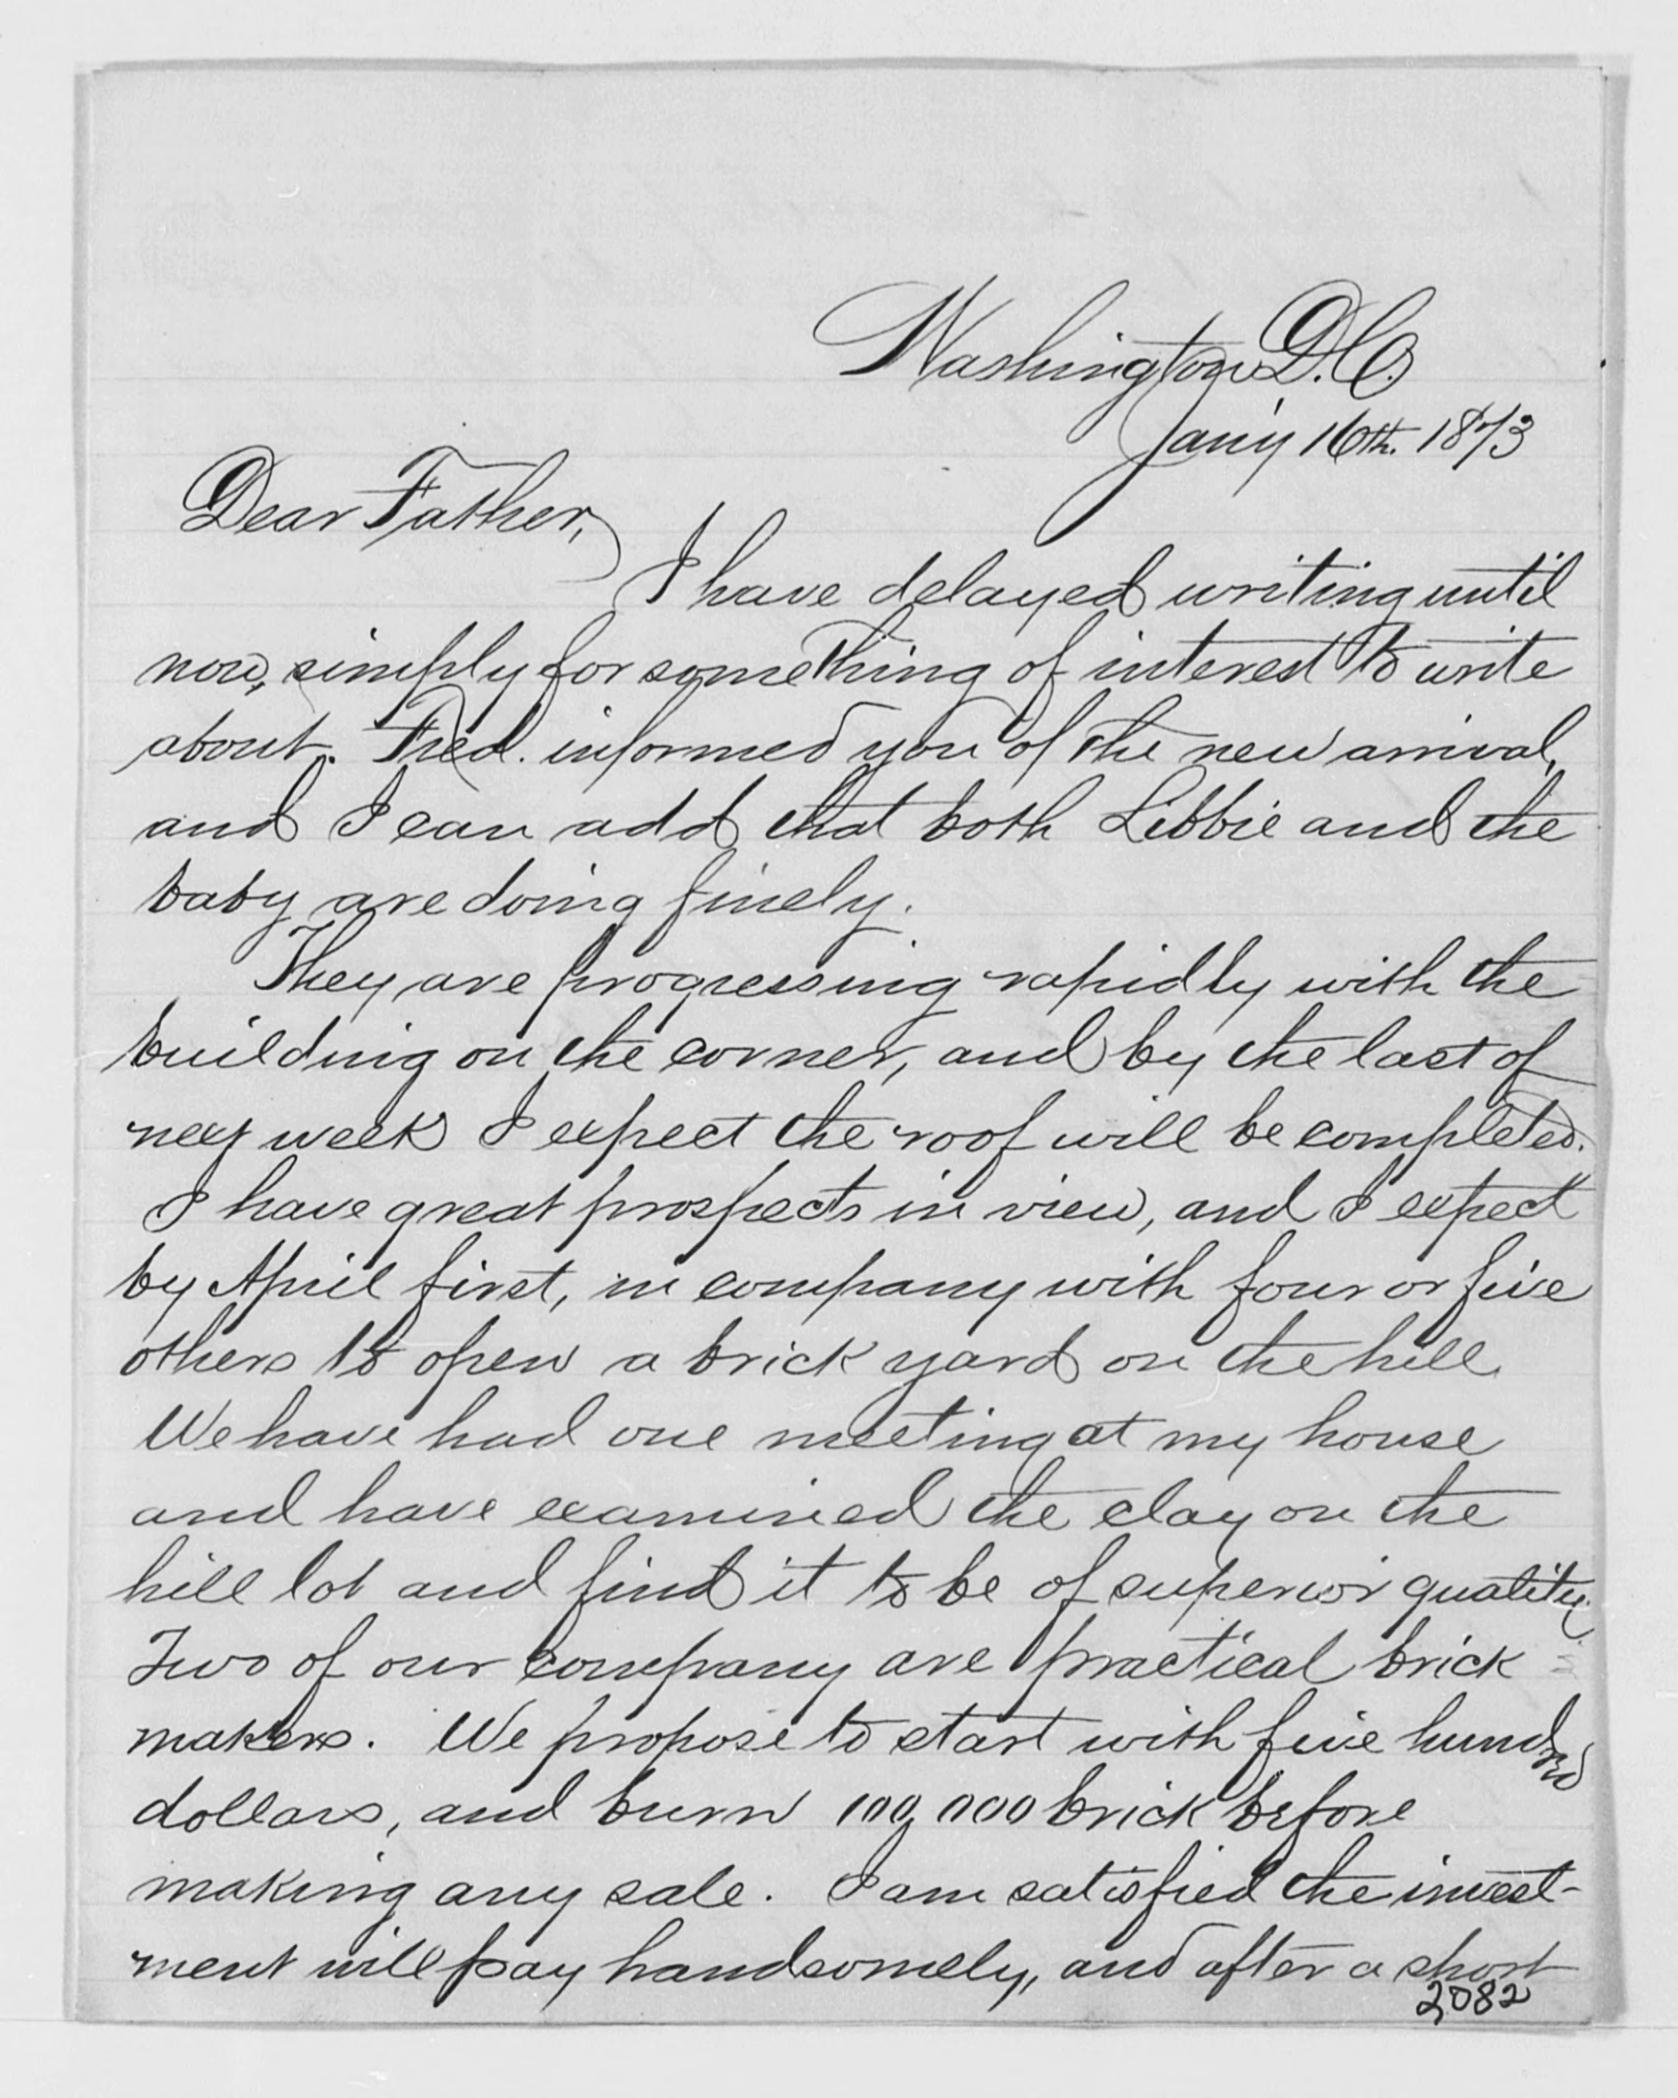 Washington D.C.
Jan'y 16th. 1873
Dear Father,
I have delayed writing until
now, simply for something of interest to write
about. Fred. informed you of the new arrival,
and I can add that both Libbie and the
baby are doing finely.
They are progressing rapidly with the
building on the corner, and by the last of
next week I expect the roof will be completed.
I have great prospects in view, and I expect
by April first, in company with four or five
others to open a brick yard on the hill.
We have had one meeting at my house
and have examined the clay on the
hill lot and find it to be of superior quality.
Two of our company are practical brick
makers. We propose to start with five hundred
dollars, and burn 100,000 brick before
making any sale. I am satisfied the invest-
ment will pay handsomely, and after a short
2082